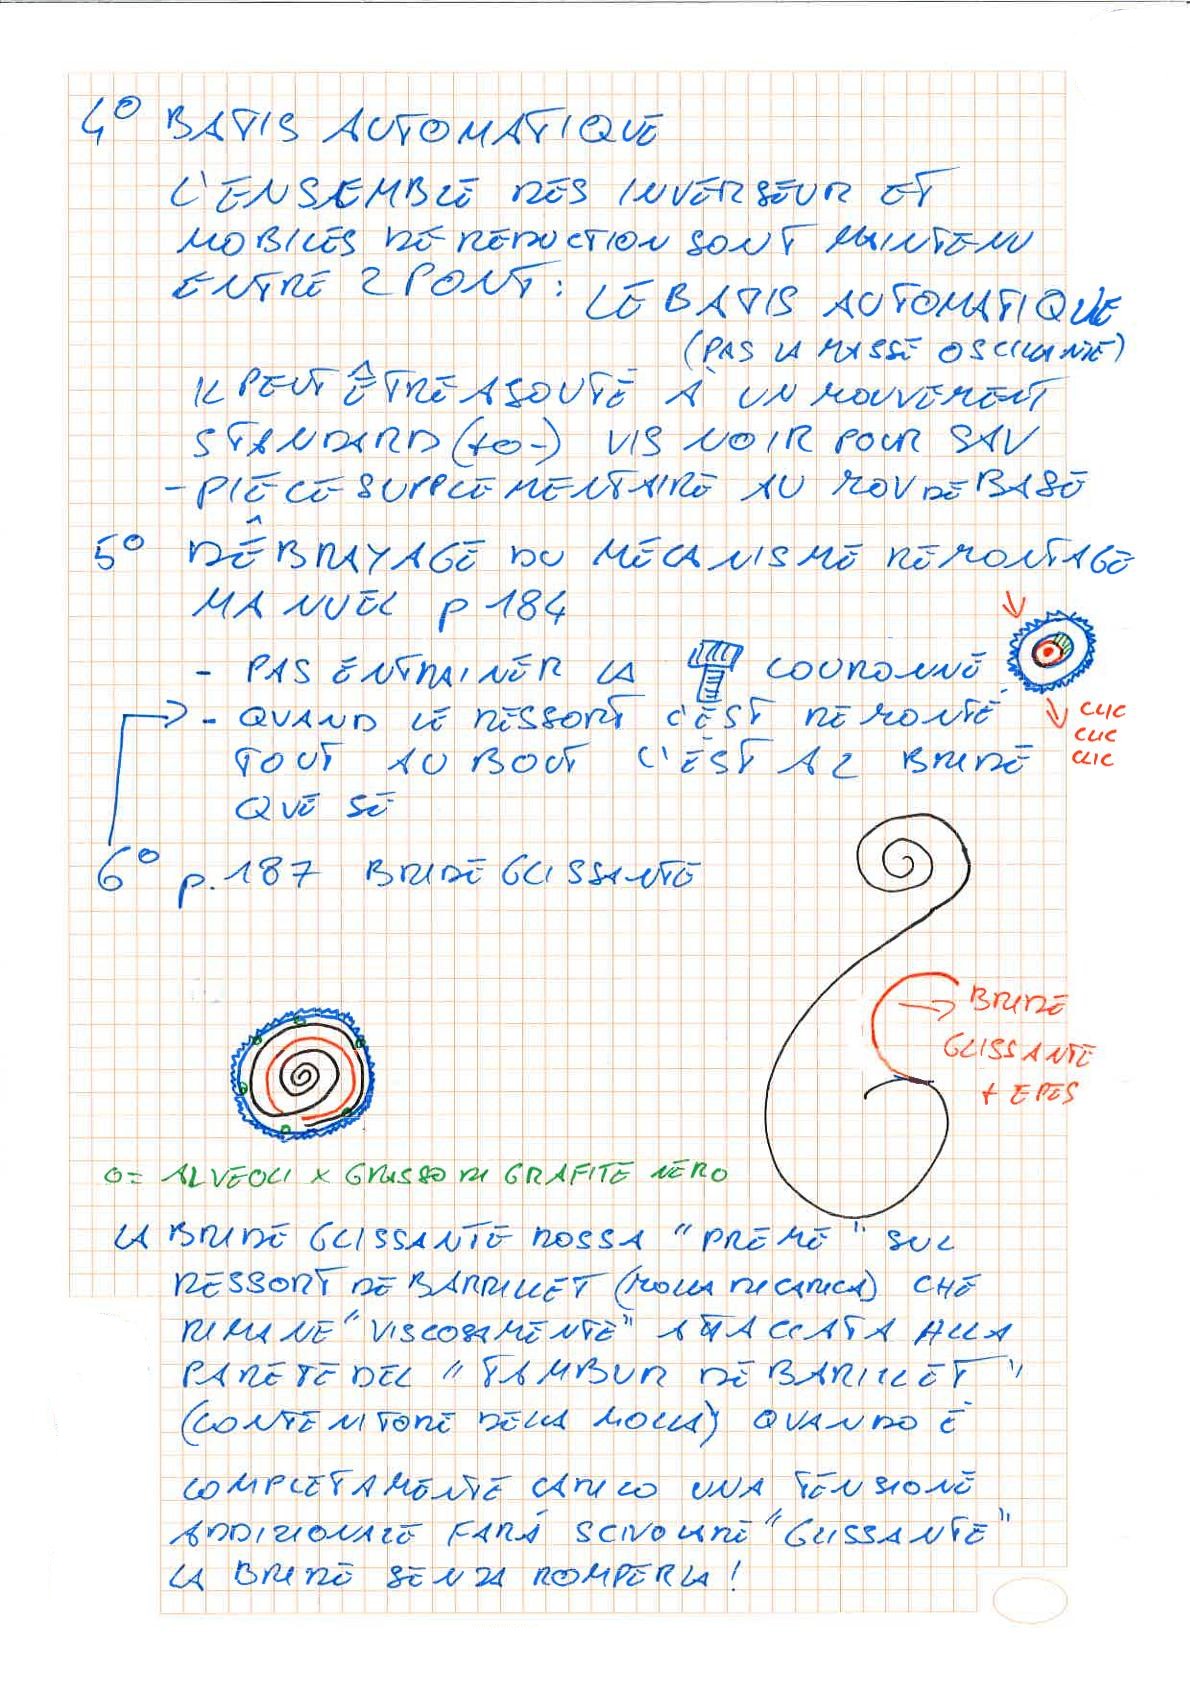 4° BATIS AUTOMATIQUE
L'ENSEMBLE DES INVERSEUR ET
MOBILES DE REDUCTION SONT MAINTENU
ENTRE 2 PONT: LE BATIS AUTOMATIQUE
(PAS LA MASSE OSCILLANTE)
IL PEUT ÊTRE AJOUTÉ À UN MOUVEMENT
STANDARD (+0-) VIS NOIR POUR SAV
- PIÈCE SUPPLEMENTAIRE AU MOUV DE BASE
5° DÊBRAYAGE DU MÉCANISME REMONTAGE
MANUEL p 184
- PAS ENTRAINER LA COURONNE
- QUAND LE RESSORT C'EST REMONTÉ
TOUT AU BOUT C'EST A2 BRIDE
QUE SE
CLIC
CLIC
CLIC
6° p. 187 BRIDE GLISSANTE
BRIDE
GLISSANTE
+ EPES
O= ALVEOLI x GRASSO DI GRAFITE NERO
LA BRIDE GLISSANTE ROSSA "PREME" SUL
RESSORT DE BARRILLET (MOLLA DI CARICA) CHE
RIMANE "VISCOSAMENTE" ATTACCATA ALLA
PARETE DEL "TAMBUR DE BARILLET"
(CONTENITORE DELLA MOLLA) QUANDO È
COMPLETAMENTE CARICO UNA TENSIONE
ADDIZIONALE FARÁ SCIVOLARE "GLISSANTE"
LA BRIDE SENZA ROMPERLA!